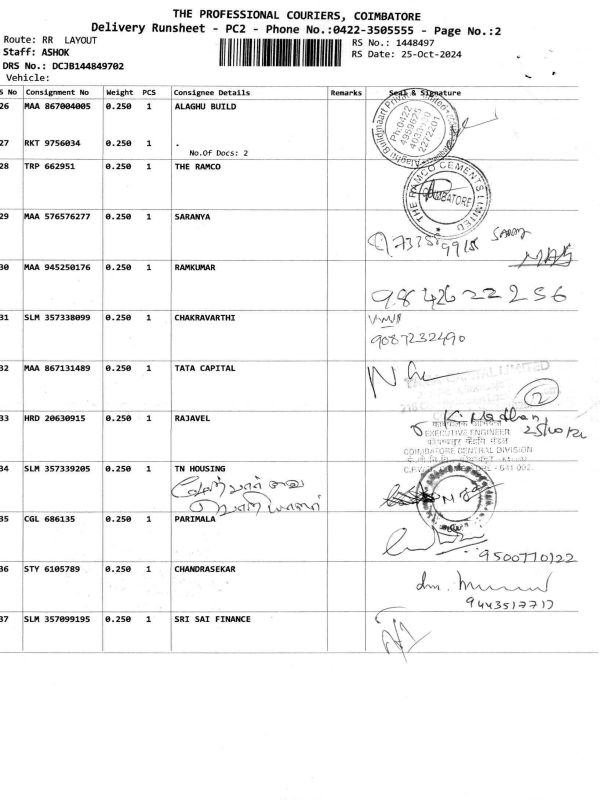 THE PROFESSIONAL COURIERS, COIMBATORE
Delivery Runsheet - PC2 - Phone No.:0422-3505555 - Page No.:2
Route: RR LAYOUT
RS No.: 1448497
Staff: ASHOK
RS Date: 25-Oct-2024
DRS No.: DCJB144849702
Vehicle:
S No Consignment No Weight PCS Consignee Details Remarks Seal & Signature
26 MAA 867004005 0.250 1 ALAGHU BUILD
Ph:0422
4959675
4030350
2272201
27 RKT 9756034 0.250 1 .
No.Of Docs: 2
28 TRP 662951 0.250 1 THE RAMCO
THE RAMCO CEMENTS LIMITED
COIMBATORE
29 MAA 576576277 0.250 1 SARANYA
30 MAA 945250176 0.250 1 RAMKUMAR
9842622256
31 SLM 357338099 0.250 1 CHAKRAVARTHI
9087232490
32 MAA 867131489 0.250 1 TATA CAPITAL
CAPITAL LIMITED
2
33 HRD 20630915 0.250 1 RAJAVEL
K. Madhan
25/10/24
EXECUTIVE ENGINEER
COIMBATORE CENTRAL DIVISION
641 002
34 SLM 357339205 0.250 1 TN HOUSING
35 CGL 686135 0.250 1 PARIMALA
9500770122
36 STY 6105789 0.250 1 CHANDRASEKAR
9443517717
37 SLM 357099195 0.250 1 SRI SAI FINANCE